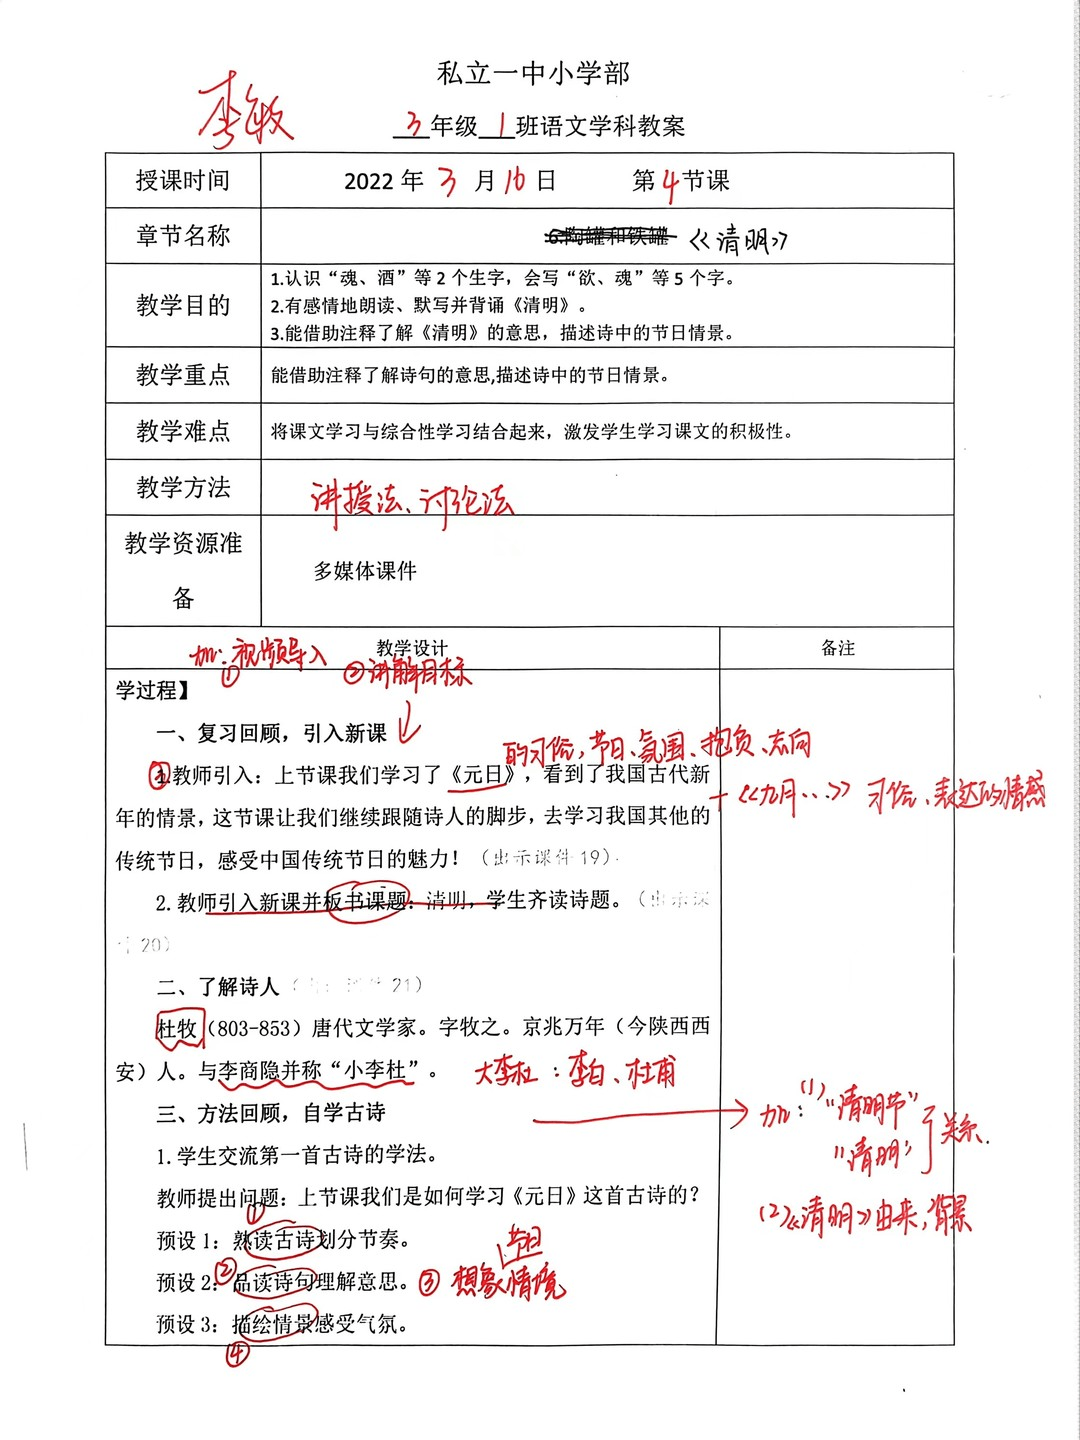 私立一中小学部
李敏
3年级 1 班语文学科教案
授课时间 2022年 3 月 16日 第4节课
章节名称 6.陶罐和铁罐 《清明》
教学目的
1.认识“魂、酒”等2个生字，会写“欲、魂”等5个字。
2.有感情地朗读、默写并背诵《清明》。
3.能借助注释了解《清明》的意思，描述诗中的节日情景。
教学重点 能借助注释了解诗句的意思,描述诗中的节日情景。
教学难点 将课文学习与综合性学习结合起来，激发学生学习课文的积极性。
教学方法 讲授法、讨论法
教学资源准
备
多媒体课件
教学设计 备注
加:视频导入
①
②讲解目标
学过程】
一、复习回顾，引入新课
的习俗,节日、氛围、抱负、志向
③教师引入：上节课我们学习了《元日》，看到了我国古代新
+《九月...》 习俗、表达的情感
年的情景，这节课让我们继续跟随诗人的脚步，去学习我国其他的
传统节日，感受中国传统节日的魅力！（出示课件19）.
2.教师引入新课并板书课题：清明，学生齐读诗题。（出示课
件20）
二、了解诗人 21）
杜牧（803-853）唐代文学家。字牧之。京兆万年（今陕西西
安）人。与李商隐并称“小李杜”。 大李杜：李白、杜甫
三、方法回顾，自学古诗
加： (1) “清明节”
“清明” 关系.
1.学生交流第一首古诗的学法。
教师提出问题：上节课我们是如何学习《元日》这首古诗的？
(2)《清明》由来,背景
①
预设1：熟读古诗划分节奏。
节日
②
预设2：品读诗句理解意思。③想象情境
预设3：描绘情景感受气氛。
④